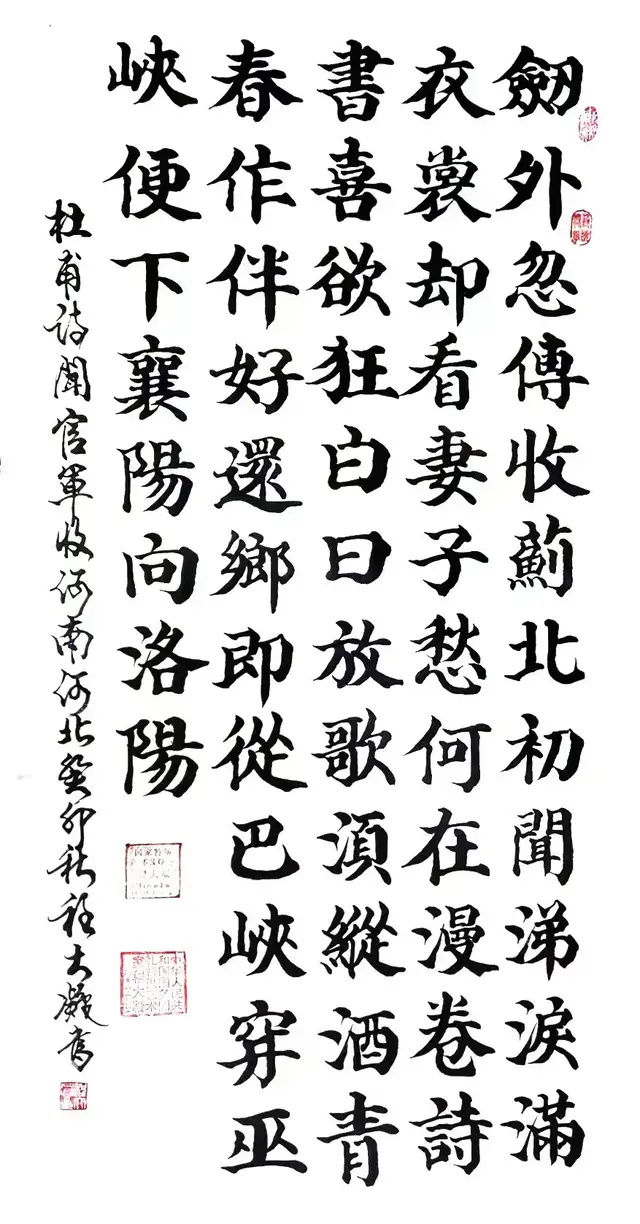 劒外忽傳收薊北初聞涕淚滿
衣裳却看妻子愁何在漫卷詩
書喜欲狂白日放歌湏縱酒青
春作伴好還鄉即從巴峽穿巫
峽便下襄陽向洛陽
杜甫詩聞官軍收河南河北癸卯秋程大凝